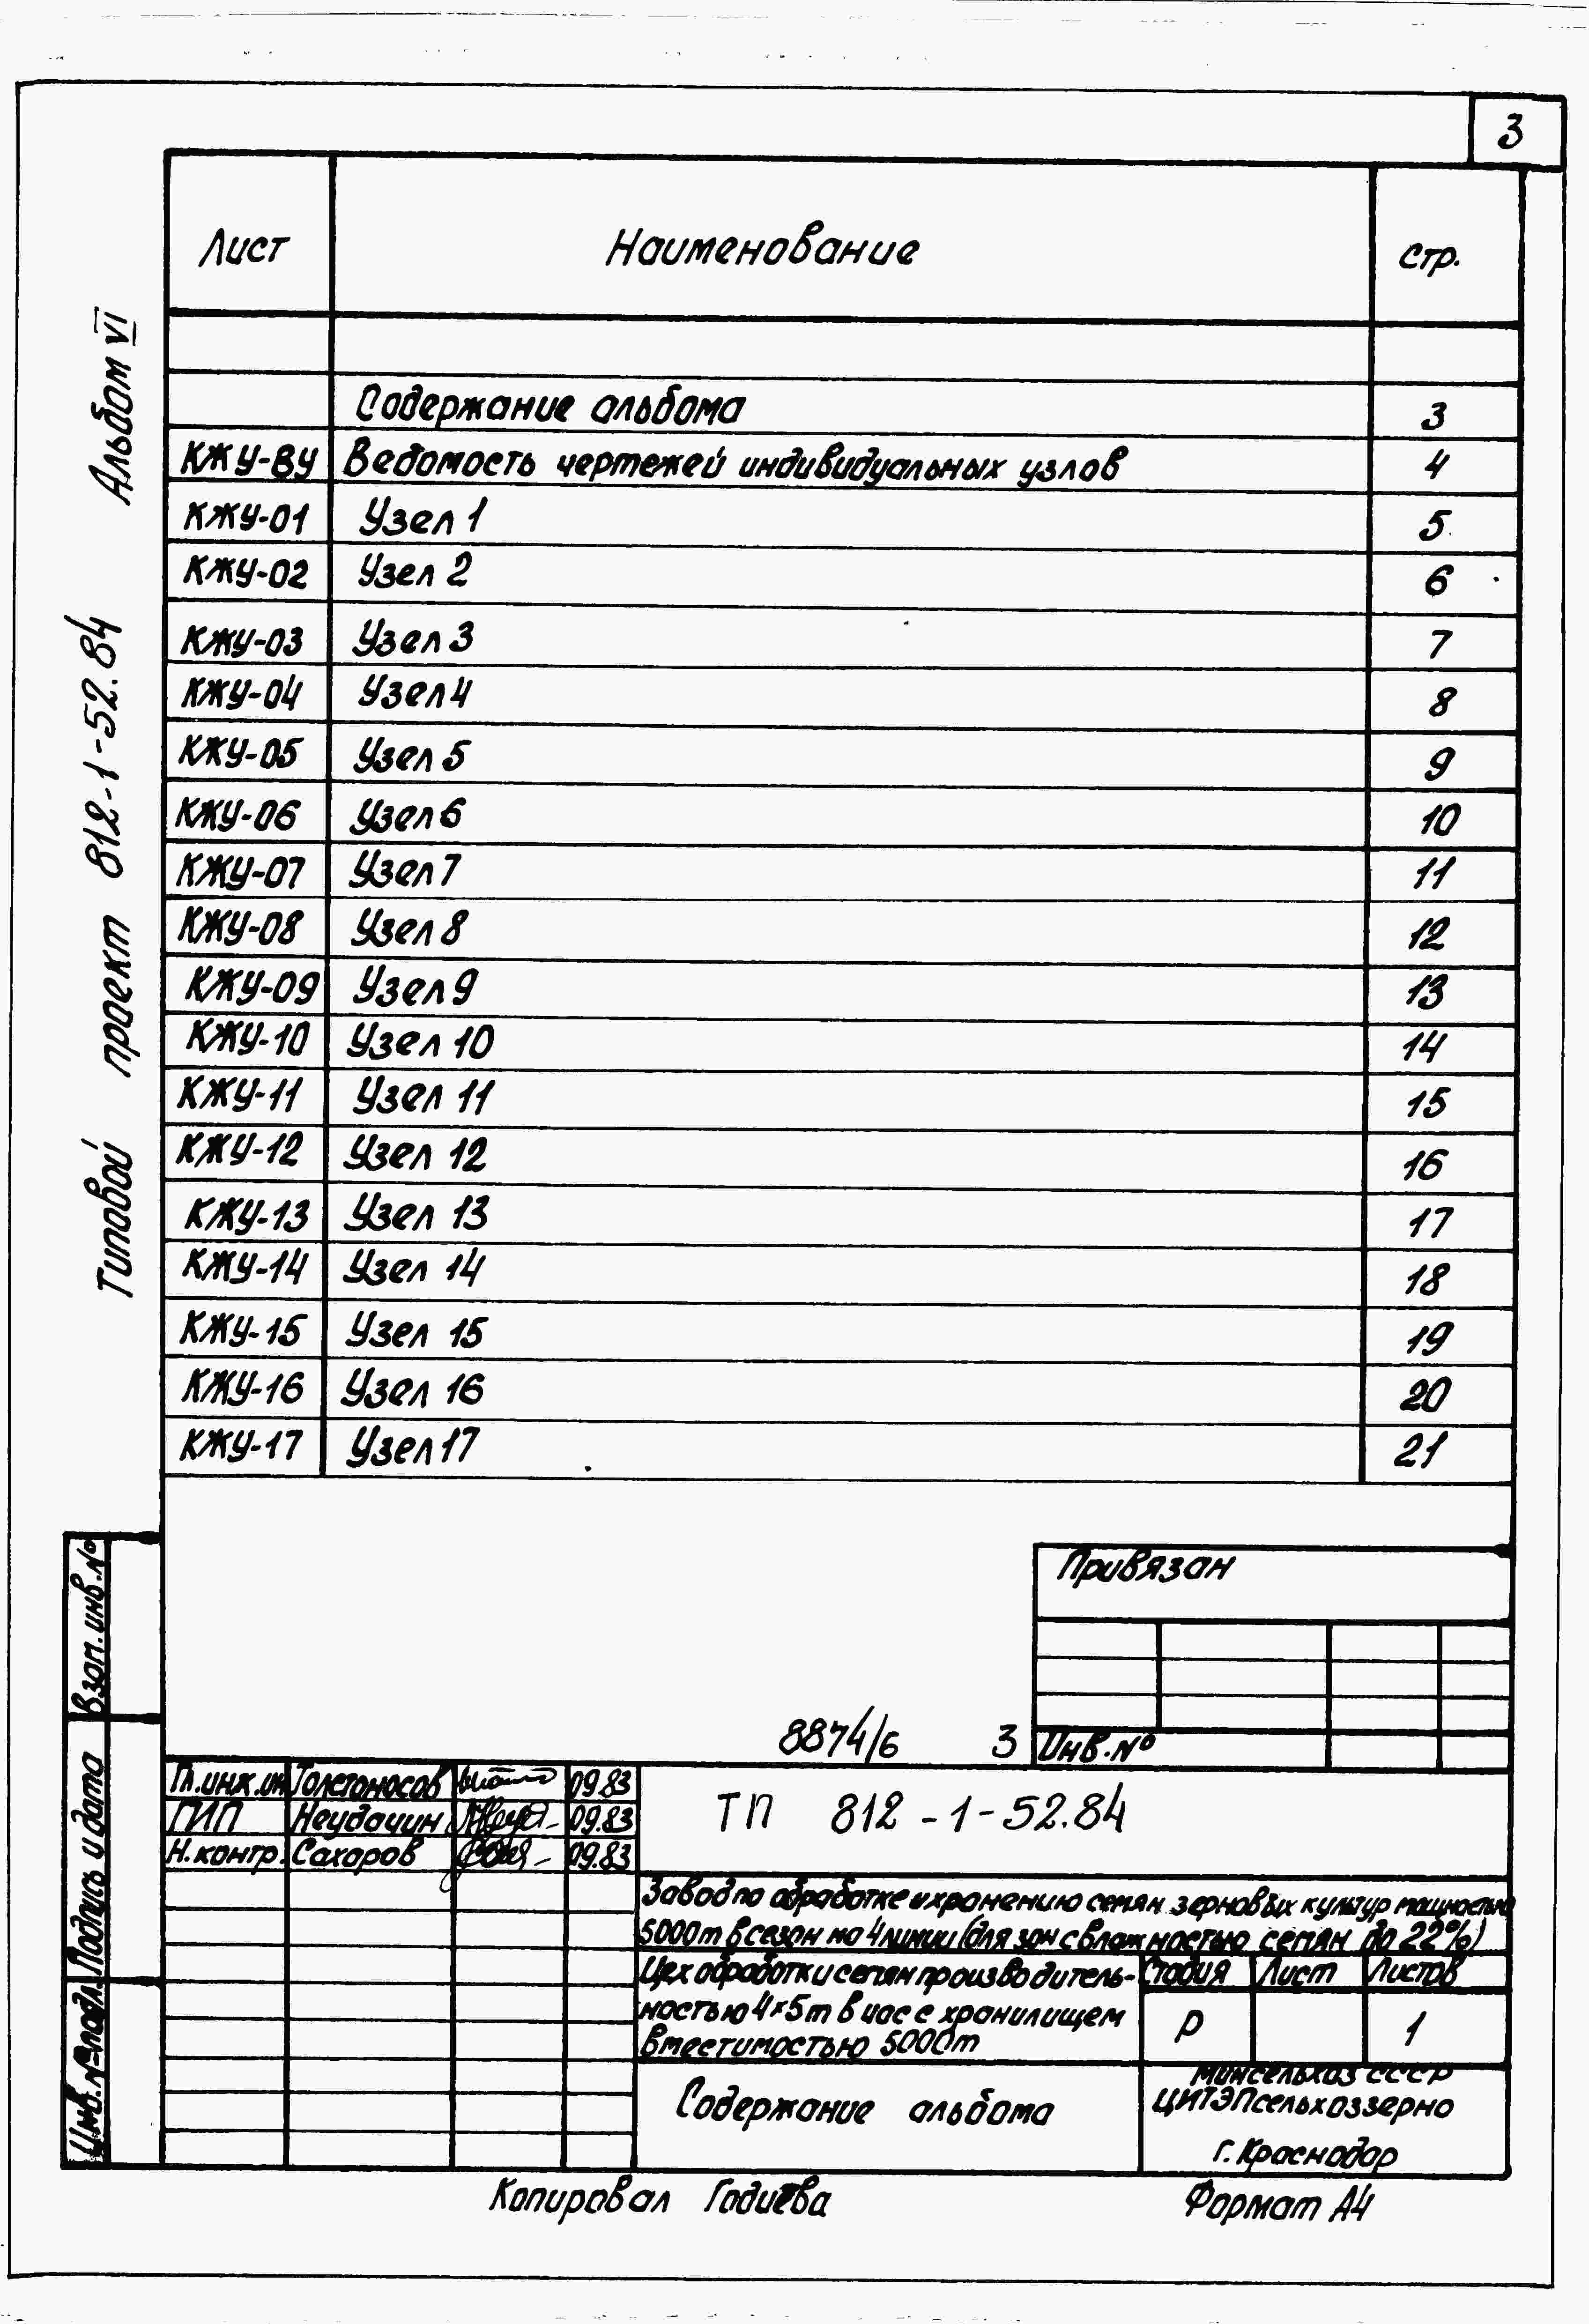 3
Лист Наименование Стр.
Содержание альбома 3
КЖУ-ВУ Ведомость чертежей индивидуальных узлов 4
КЖУ-01 Узел 1 5
КЖУ-02 Узел 2 6
КЖУ-03 Узел 3 7
КЖУ-04 Узел 4 8
КЖУ-05 Узел 5 9
КЖУ-06 Узел 6 10
КЖУ-07 Узел 7 11
КЖУ-08 Узел 8 12
КЖУ-09 Узел 9 13
КЖУ-10 Узел 10 14
КЖУ-11 Узел 11 15
КЖУ-12 Узел 12 16
КЖУ-13 Узел 13 17
КЖУ-14 Узел 14 18
КЖУ-15 Узел 15 19
КЖУ-16 Узел 16 20
КЖУ-17 Узел 17 21
Типовой проект 812-1-52.84 Альбом VI
Взам. инв. №
Подпись и дата
Инв. № подл.
Привязан
Инв. №
8874/6 3
Гл. инж. ин. Толстоносов 09.83
ГИП Неудачин 09.83
Н. контр. Сахаров 09.83
ТП 812-1-52.84
Завод по обработке и хранению семян зерновых культур мощностью
5000т в сезон на 4 линии (для зон с влажностью семян до 22%)
Цех обработки семян производитель-
ностью 4×5т в час с хранилищем
вместимостью 5000т
Стадия Лист Листов
Р 1
Содержание альбома
Минсельхоз СССР
ЦИТЭПсельхоззерно
г. Краснодар
Копировал Годиева
Формат А4